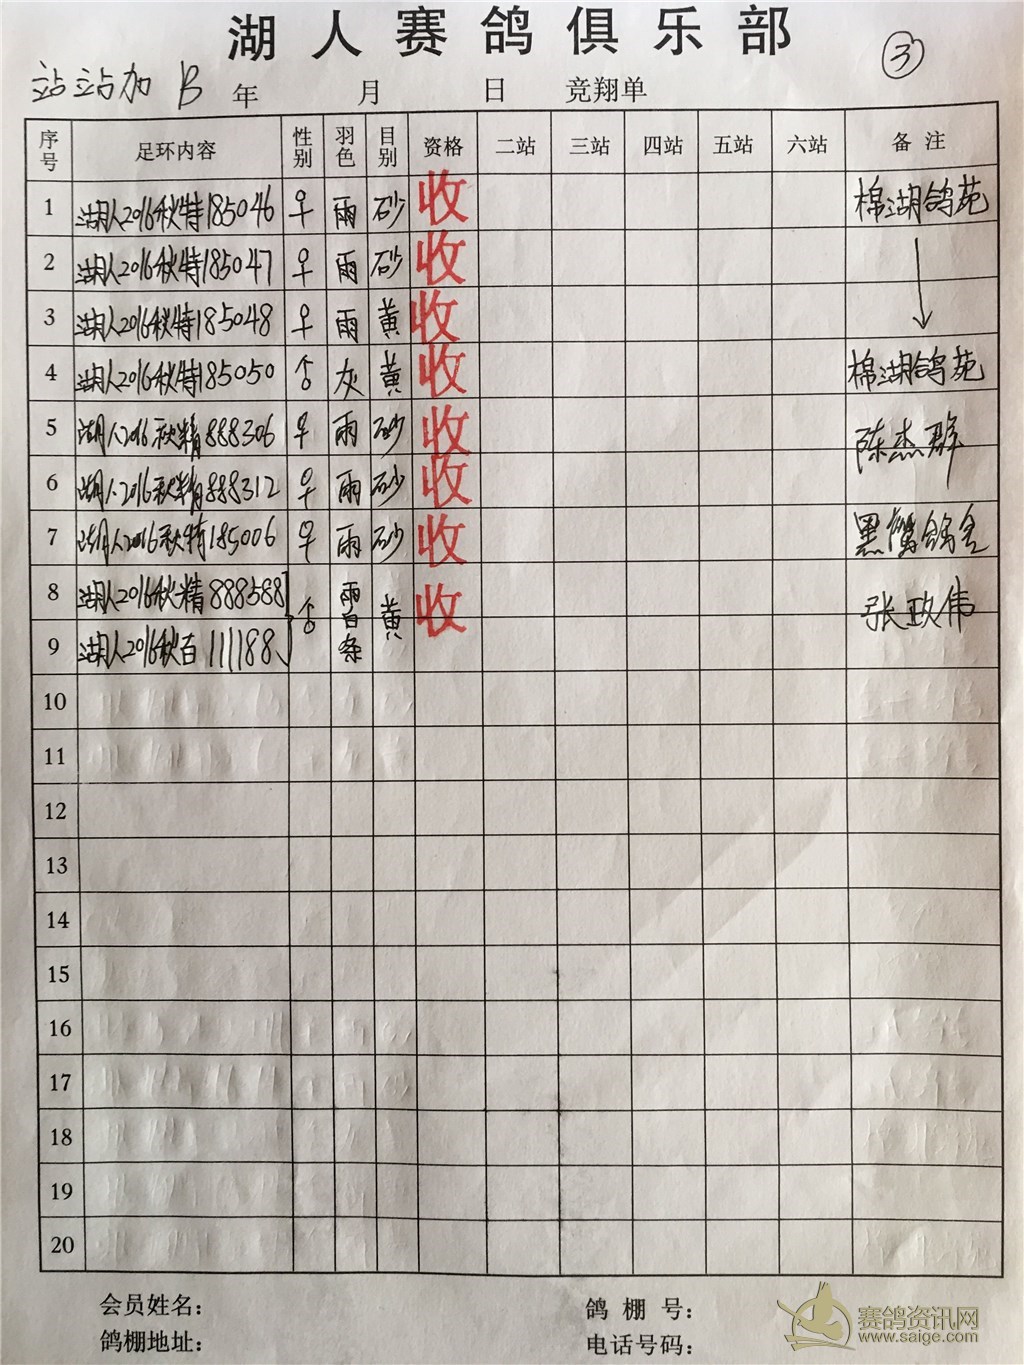 湖人赛鸽俱乐部
③
站站加 B 年 月 日 竞翔单
序号 足环内容 性别 羽色 目别 资格 二站 三站 四站 五站 六站 备注
1 湖人2016秋特185046 ♀ 雨 砂 收 棉湖鸽苑
2 湖人2016秋特185047 ♀ 雨 砂 收
3 湖人2016秋特185048 ♀ 雨 黄 收
4 湖人2016秋特185050 ♂ 灰 黄 收 棉湖鸽苑
5 湖人2016秋精888306 ♀ 雨 砂 收 陈杰群
6 湖人2016秋精888312 ♀ 雨 砂 收
7 湖人2016秋特185006 ♀ 雨 砂 收 黑鹰鸽舍
8 湖人2016秋精888588 ♂ 雨白条 黄 收 张政伟
9 湖人2016秋百111188
10
11
12
13
14
15
16
17
18
19
20
会员姓名： 鸽棚号：
鸽棚地址： 电话号码：
赛鸽资讯网
www.saige.com